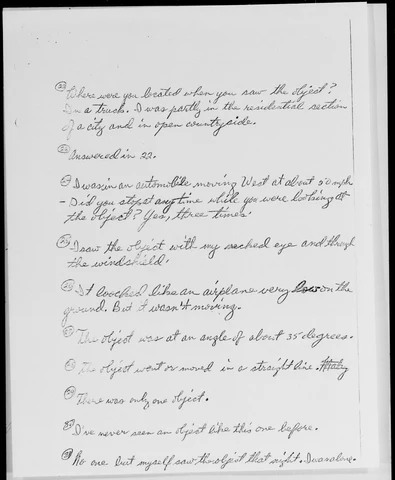 22 Where were you located when you saw the object?
In a truck. I was partly in the residential section
of a city and in open countryside.
Answered in 22.
I was in an automobile moving West at about 50 mph
- Did you stop at any time while you were looking at
the object? Yes, three times.
I saw the object with my necked eye and through
the windshield.
It looked like an airplane very low on the
ground. But it wasn't moving.
The object was at an angle of about 35 degrees.
The object went or moved in a straight line.
There was only one object.
I've never seen an object like this one before.
No one but myself saw the object that night. I was alone.